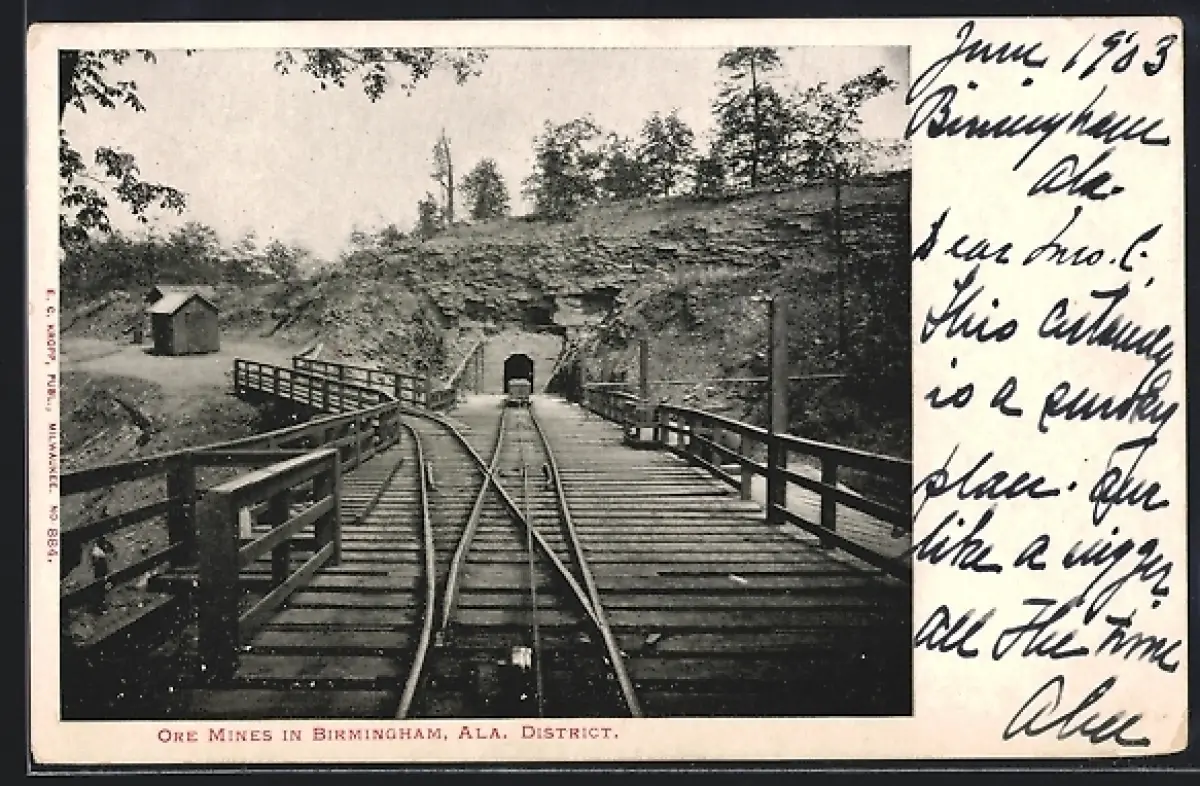 June 1903
Birmingham
Ala.
Dear Jno. C.
This certainly
is a smoky
place. Am
like a nigger
all the time
Abee
ORE MINES IN BIRMINGHAM, ALA. DISTRICT.
E. C. KROPP, PUBL., MILWAUKEE. NO 884.